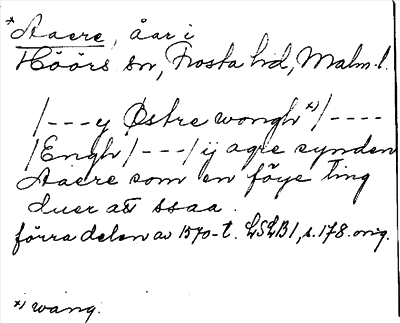 *Aaere, åar i
Höörs sn, Frosta hd, Malm. l.
/---y Østre wongh *)/----
/Engh/---/ij agre synden
Aaere som en föye ting
duer att ssaa.
förra delen av 1570-t. LSLB1, s. 178. orig.
*) wång.